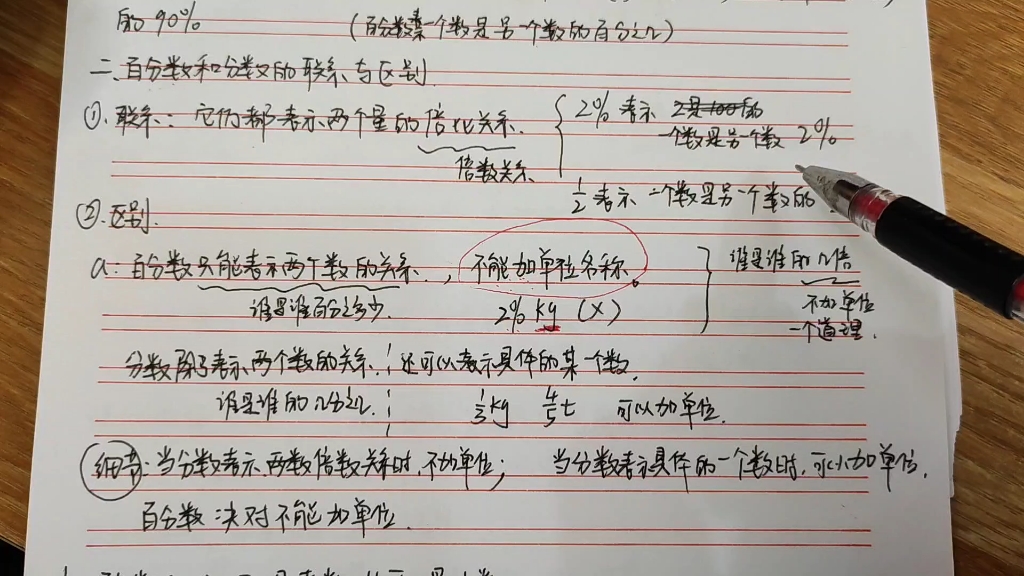 的90%　(百分数表一个数是另一个数的百分之几)
二、百分数和分数的联系与区别
①. 联系：它们都表示两个量的倍比关系.
倍数关系
2%表示 2是100的
一个数是另一个数 2%
1/2 表示 一个数是另一个数的
②区别.
a：百分数只能表示两个数的关系，不能加单位名称。
谁是谁百分之多少.　2% kg (X)
谁是谁的几倍
不加单位
一个道理.
分数除了表示两个数的关系，还可以表示具体的某一个数.
谁是谁的几分之几.　1/3 kg　4/5 t　可以加单位.
细节：当分数表示两数倍数关系时，不加单位；　当分数表示具体的一个数时，可以加单位.
百分数决对不能加单位.